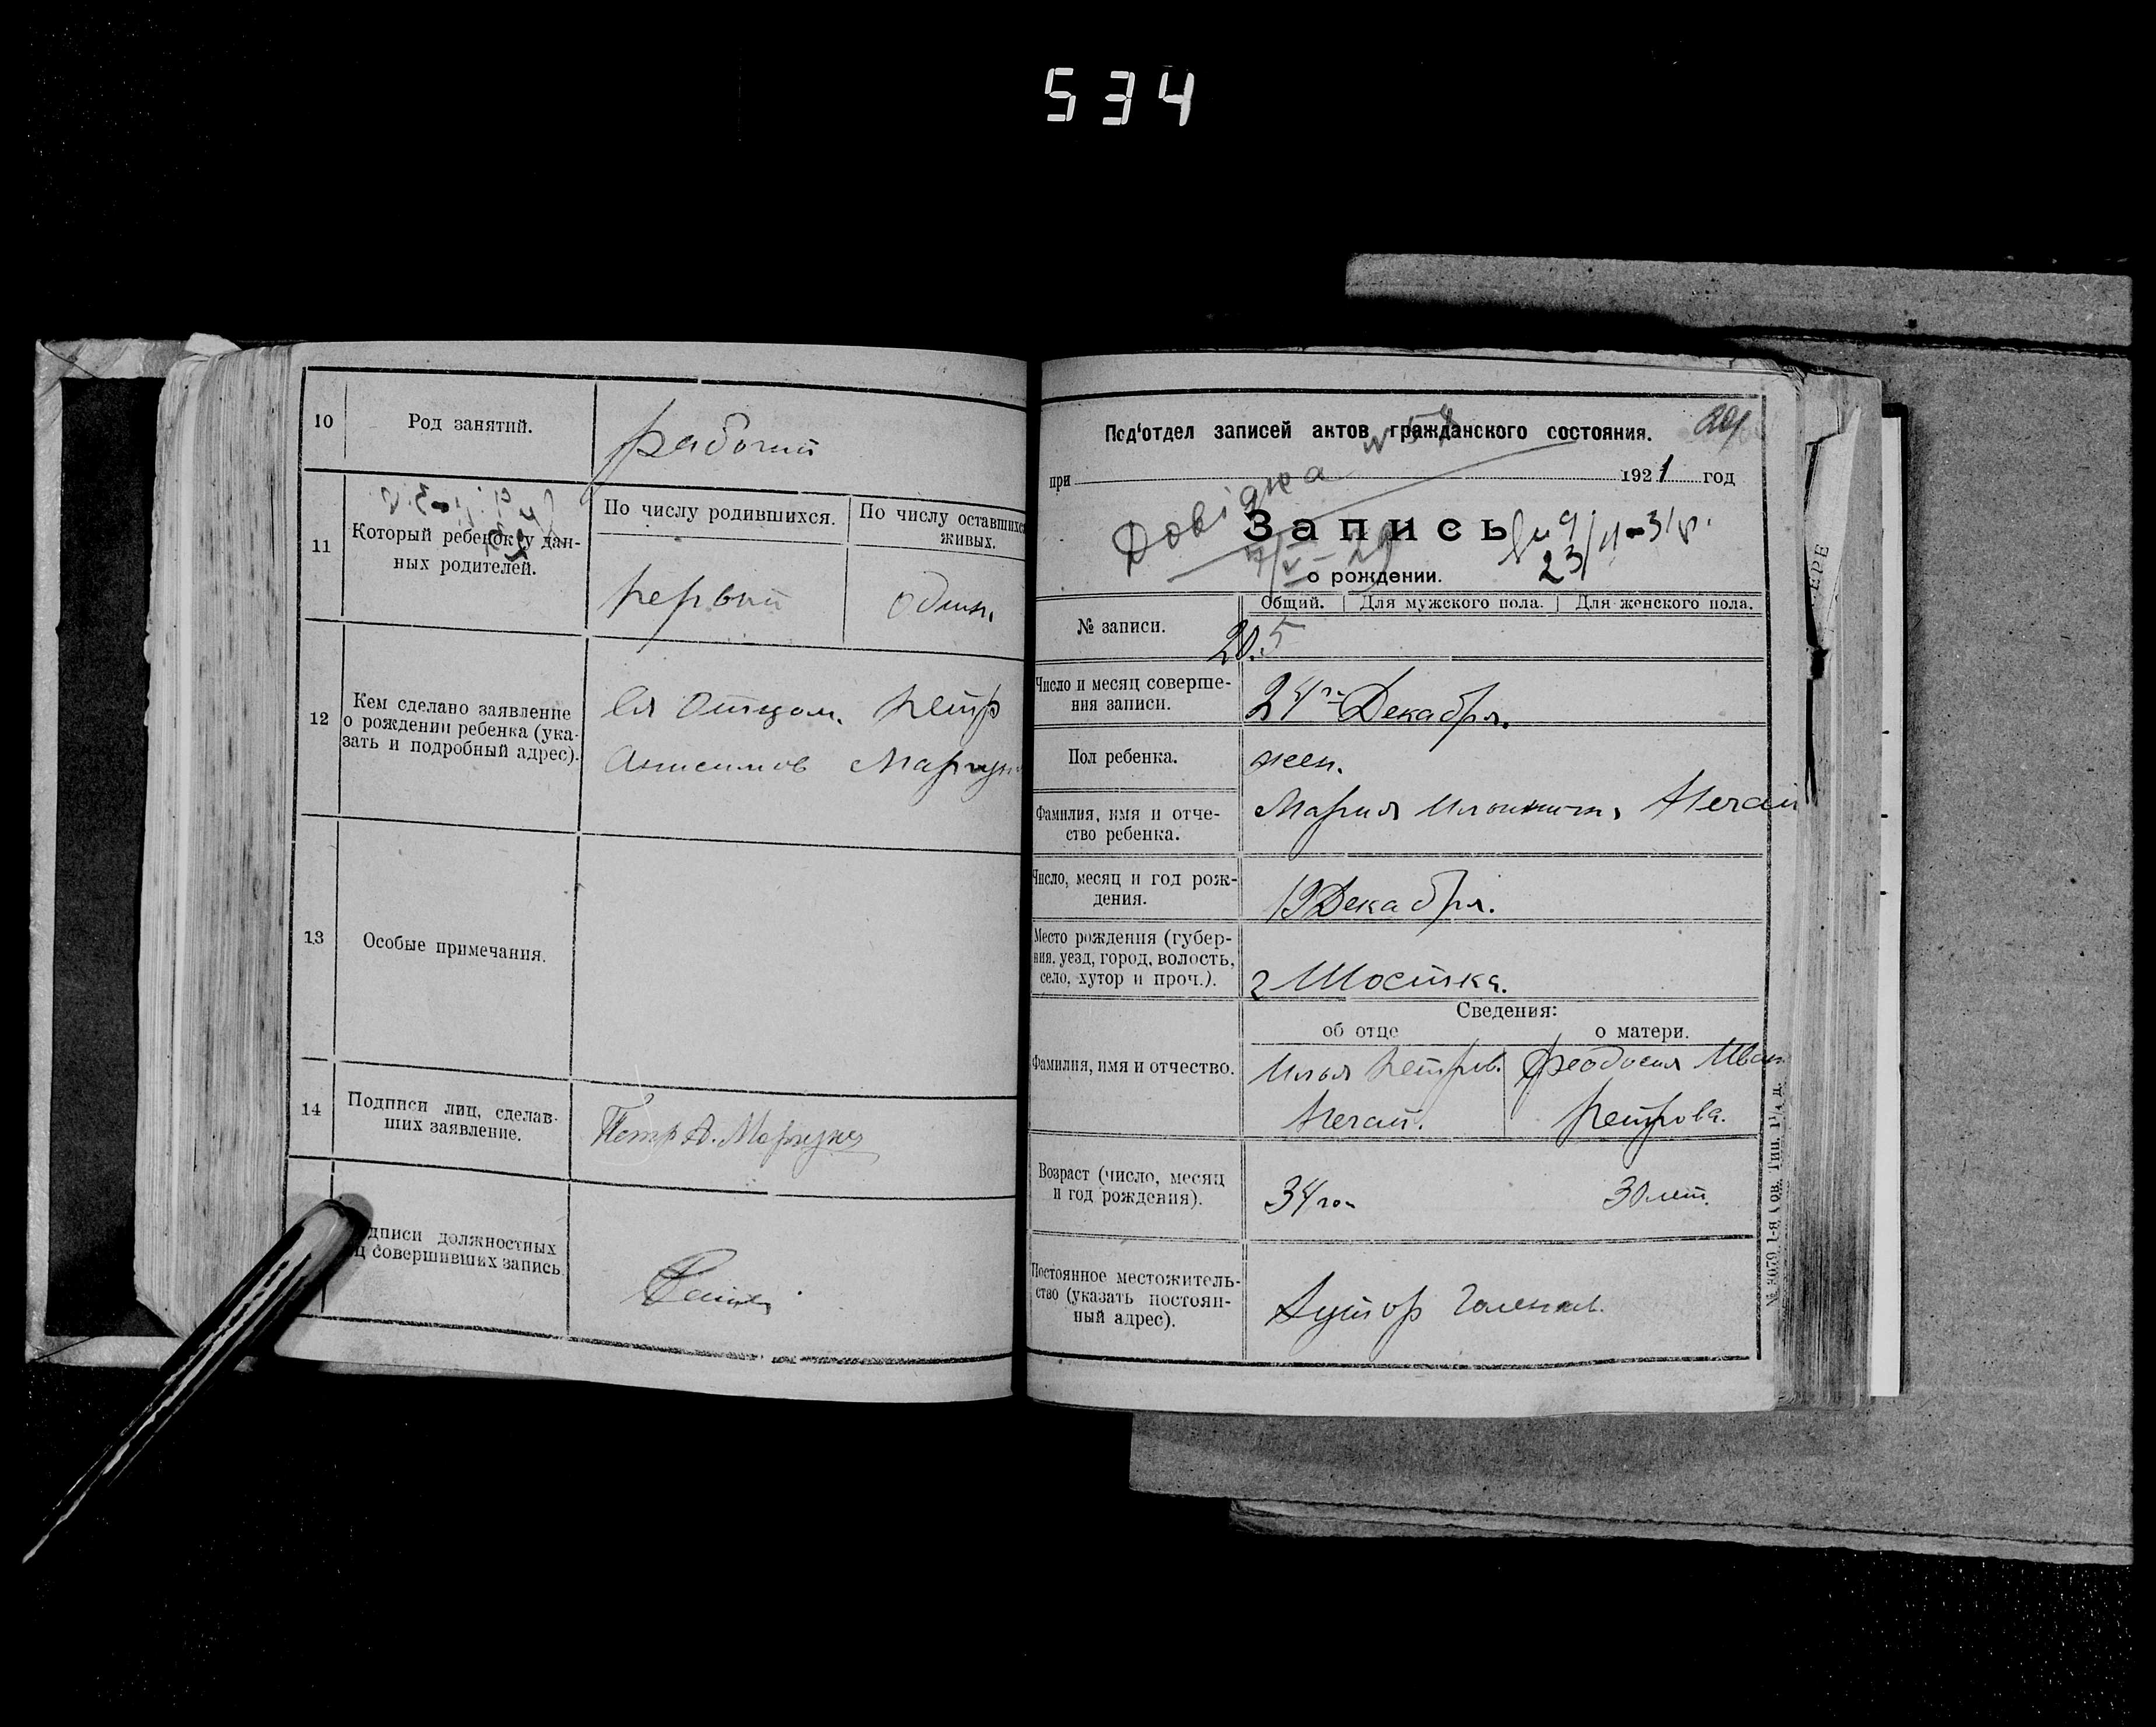 534
10 Род занятий. рабочий
11 Который ребенок у дан-
ных родителей.
По числу родившихся. По числу оставшихся
живых.
первый один.
12 Кем сделано заявление
о рождении ребенка (ука-
зать и подробный адрес).
Ея Отцом. Петр
Анисимов
13 Особые примечания.
14 Подписи лиц, сделав-
ших заявление.
Петр А.
дписи должностных
ц совершивших запись.
Под‘отдел записей актов гражданского состояния.
201
при 1921 год
Довідка № 54
Запись
23/II-31р.
о рождении.
Общий. Для мужского пола. Для женского пола.
№ записи. 205
Число и месяц соверше-
ния записи.
24го Декабря.
Пол ребенка. жен.
Фамилия, имя и отче-
ство ребенка.
Мария Нечай
Число, месяц и год рож-
дения.
19 Декабря.
Место рождения (губер-
ния, уезд, город, волость,
село, хутор и проч.).
г Шостка.
Сведения:
об отце о матери.
Фамилия, имя и отчество.
Илья Петров. Феодосия Иван
Нечай. Петрова.
Возраст (число, месяц
и год рождения).
34 го 30 лет.
Постоянное местожитель-
ство (указать постоян-
ный адрес).
Хутор
№ 3079 1-я Сов. Тип. 1¼ д.